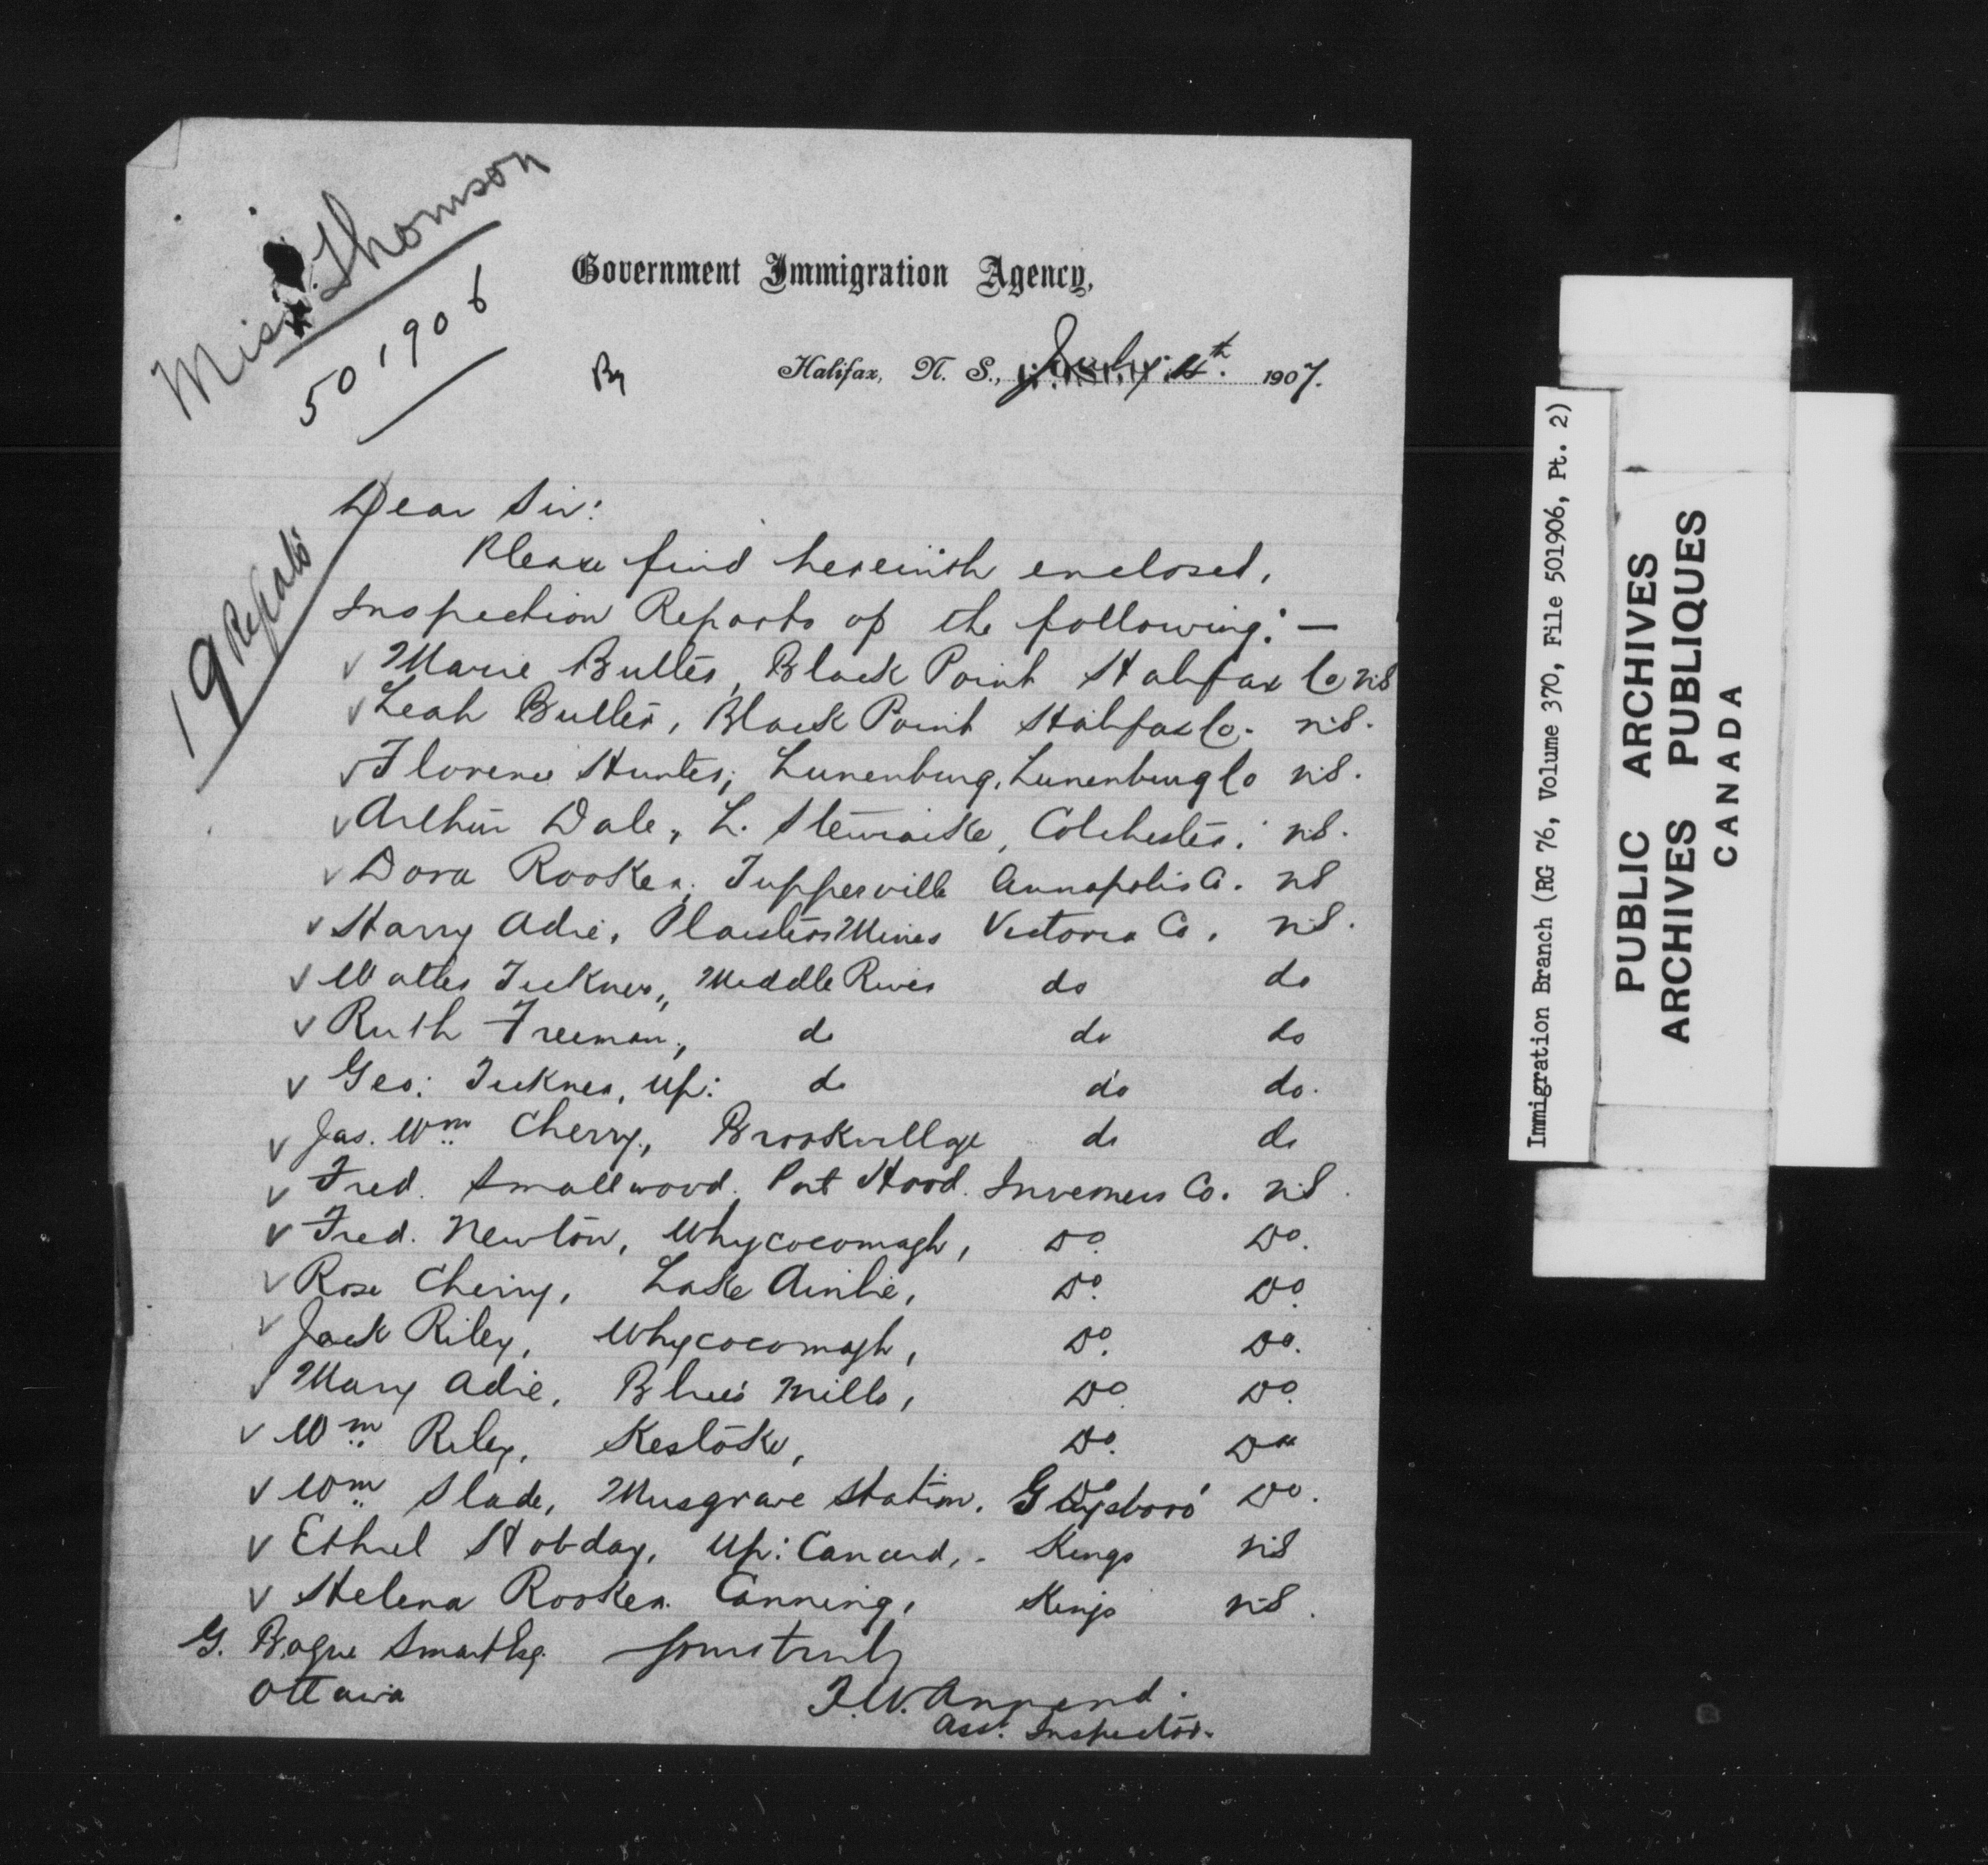 Miss Thomson
501906
Government Immigration Agency,
Halifax, N. S., July 4th. 1907.
19 Reports
Dear Sir:
Please find herewith enclosed,
Inspection Reports of the following: —
✓ Marie Butler, Black Point Halifax Co NS
✓ Leah Butler, Black Point Halifax Co. N.S.
✓ Florence Hunter, Lunenburg, Lunenburg Co N.S.
✓ Arthur Dale, L. Stewiacke, Colchester. N.S.
✓ Dora Rooker, Tupperville Annapolis Co. NS
✓ Harry Adie, Plaister Mines Victoria Co. N.S.
✓ Walter Tickner, Middle River do do
✓ Ruth Freeman, do do do
✓ Geo: Tickner, Up: do do do.
✓ Jas. Wm Cherry, Brookvillage do do
✓ Fred. Smallwood, Port Hood. Inverness Co. N.S.
✓ Fred. Newton, Whycocomagh, Do. Do.
✓ Rose Cherry, Lake Ainslie, Do. Do.
✓ Jack Riley, Whycocomagh, Do. Do.
✓ Mary Adie, Blue's Mills, Do. Do.
✓ Wm Riley, Do. Do
✓ Wm Slade, Musgrave Station, Guysboro' Do.
✓ Ethel Hobday, Up: Canard, - Kings NS
✓ Helena Rooker. Canning, Kings N.S.
G. Bogue Smart Esq. Yours truly
Ottawa F.W. Annand.
Asst. Inspector.
Immigration Branch (RG 76, Volume 370, File 501906, Pt. 2)
PUBLIC ARCHIVES
ARCHIVES PUBLIQUES
CANADA